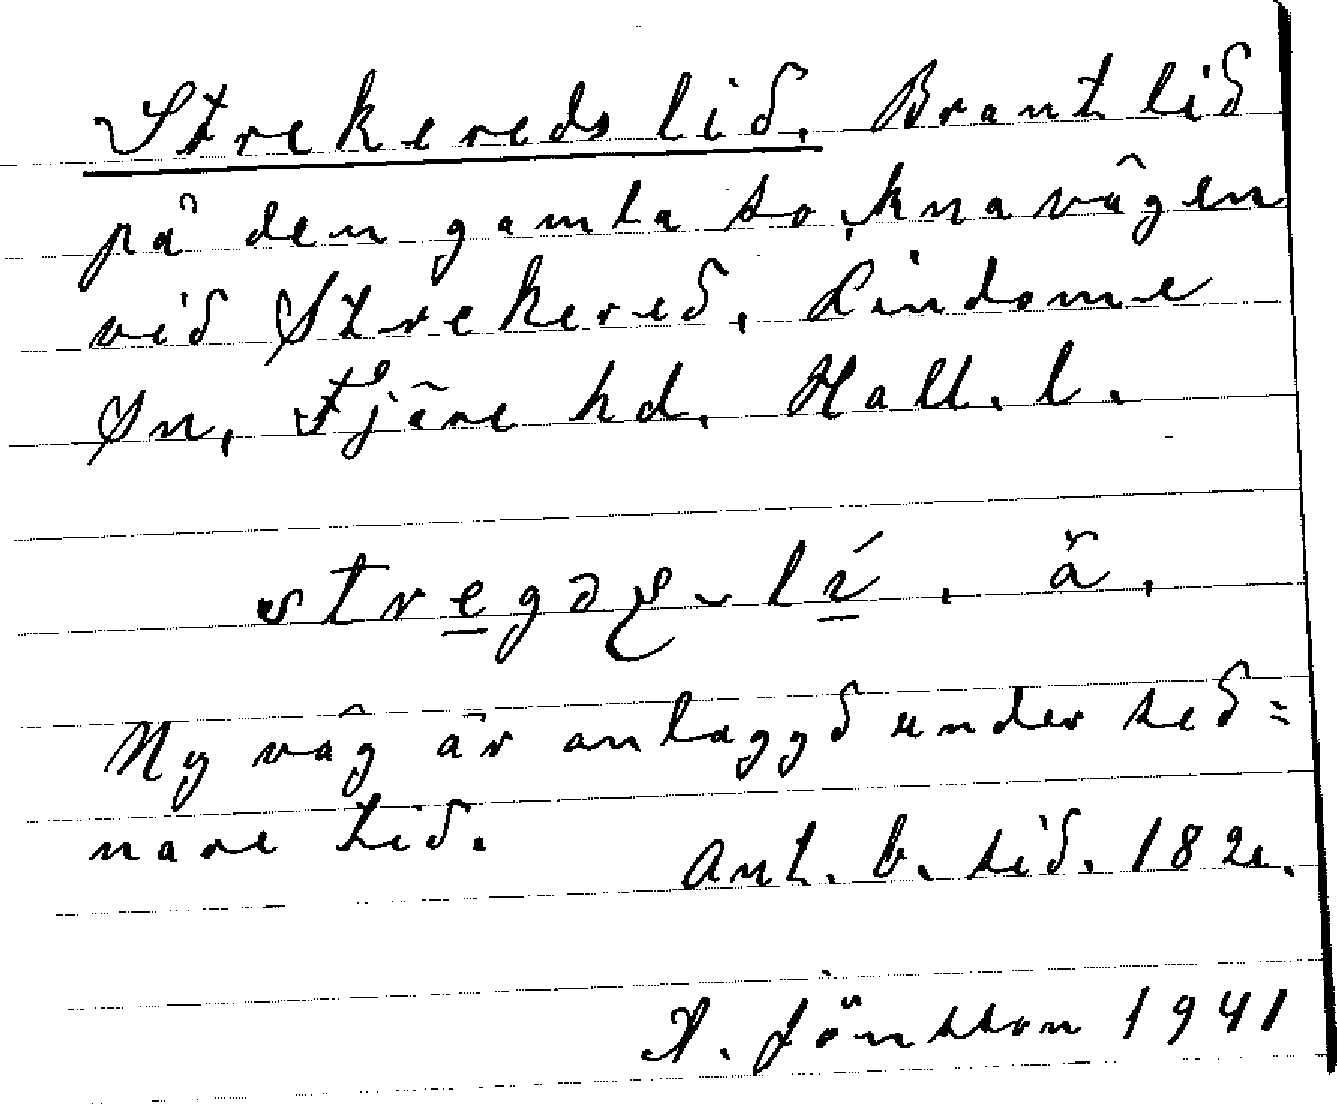 Strekereds lid. Brant lid
på den gamla so,knavägen
vid Strekered, Lindome
sn, Fjäre hd, Hall. l.
Ny väg är anlaggd under sed=
nare tid. Ant. b. sid. 182.
A. Jönsson 1941